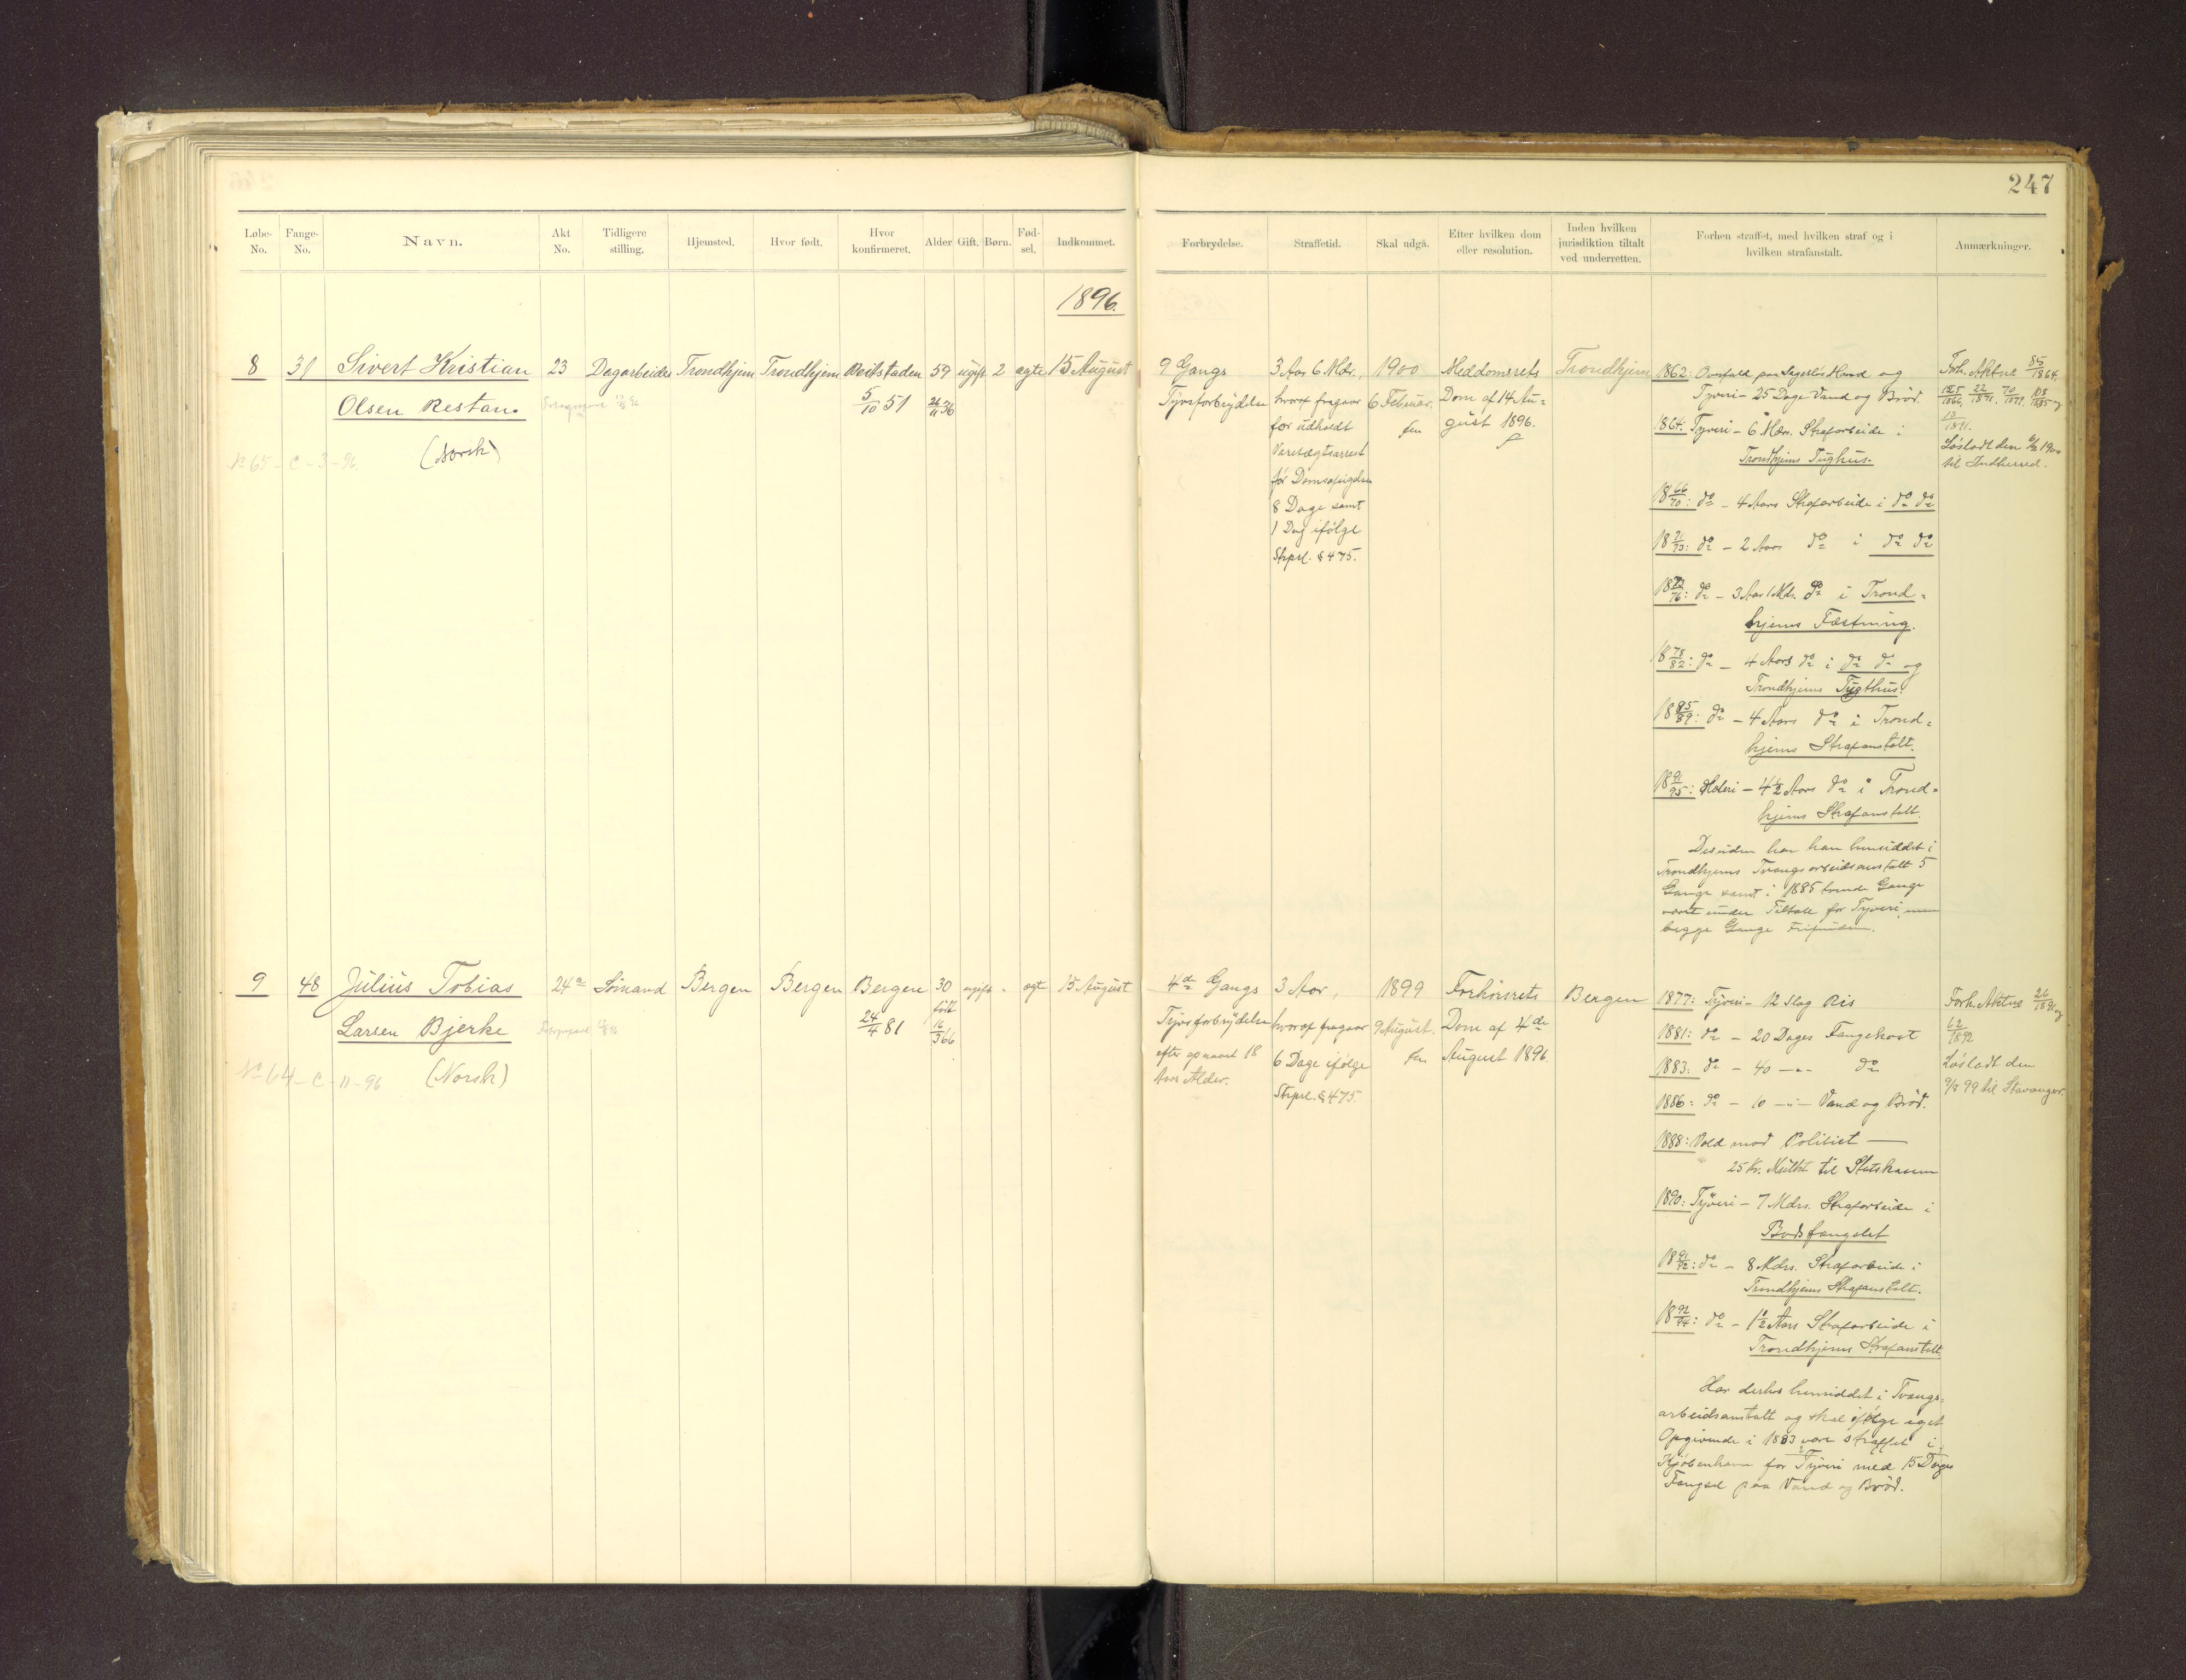 247
Løbe-No.
Fange-No.
Navn.
Akt No.
Tidligere stilling.
Hjemsted.
Hvor født.
Hvor konfirmeret.
Alder
Gift.
Børn.
Fødsel.
Indkommet.
Forbrydelse.
Straffetid.
Skal udgå.
Efter hvilken dom eller resolution.
Inden hvilken jurisdiktion tiltalt ved underretten.
Forhen straffet, med hvilken straf og i hvilken strafanstalt.
Anmærkninger.
1896.
8
31
Sivert Kristian
Olsen Restan.
(Norsk)
No 65 - C - 3 - 96.
23
Dagarbeider
Trondhjem
Trondhjem
Beitstaden
5/10 51
59
26/11 36
ugift
2
ægte
15 August
9 Gangs
Tyvsforbrydelse
3 Aar 6 Mdr.,
hvoraf fragaar
for udholdt
Varetægtsarrest
før Domsafsigelsen
8 Dage samt
1 Dag ifølge
Strprl. § 475.
1900
6 Februar.
Meddomsrets
Dom af 14 Au=
gust 1896.
Trondhjem
1862: Overfald paa Sagesløs Mand og
Tyveri - 25 Dage Vand og Brød.
1864: Tyveri - 6 Mdrs. Strafarbeide i
Trondhjems Tughus.
18 66/70: do - 4 Aars Strafarbeide i do do
18 71/73: do - 2 Aars do i do do
18 73/76: do - 3 Aar 1 Mdr. do i Trond=
hjems Fæstning.
18 78/82: do - 4 Aars do i do do og
Trondhjems Tugthus.
18 85/89: do - 4 Aars do i Trond=
hjems Strafanstalt.
18 91/95: Heleri - 4 1/2 Aars do i Trond=
hjems Strafanstalt.
Desuden har han hensiddet i
Trondhjems Tvangsarbeidsanstalt 5
Gange samt i 1885 tvende Gange
været under Tiltale for Tyveri, men
begge Gange frifunden.
Forh. Aktno 85/1864,
125/1866, 22/1871, 70/1879, 108/1885 og
13/1891.
Løsladt den 6/2 1900
til Indherred.
9
48
Julius Tobias
Larsen Bjerke
(Norsk)
No 64 - C - 11 - 96
24a
Sømand
Bergen
Bergen
Bergen
24/4 81
30
født
16/3 66
ugift
-
ægte
15 August
4de Gangs
Tyvsforbrydelse
efter opnaaet 18
Aars Alder.
3 Aar,
hvoraf fragaar
6 Dage ifølge
Strprl. § 475.
1899
9 August.
Forhørsrets
Dom af 4de
August 1896.
Bergen
1877: Tyveri - 12 Slag Ris
1881: do - 20 Dages Fangekost
1883: do - 40 -"- do
1886: do - 10 -"- Vand og Brød.
1888: Vold mod Politiet -
25 Kr. Mulkt til Statskassen
1890: Tyveri - 7 Mdrs. Strafarbeide i
Bodsfængslet
18 91/92: do - 8 Mdrs. Strafarbeide i
Trondhjems Strafanstalt.
18 92/94: do - 1 1/2 Aars Strafarbeide i
Trondhjems Strafanstalt
Har derhos hensiddet i Tvangs=
arbeidsanstalt og skal ifølge eget
Opgivende i 1883 være straffet i
Kjøbenhavn for Tyveri med 15 Dages
Fængsel paa Vand og Brød.
Forh. Aktno 26/1891 og
62/1892
Løsladt den
9/8 99 til Stavanger.